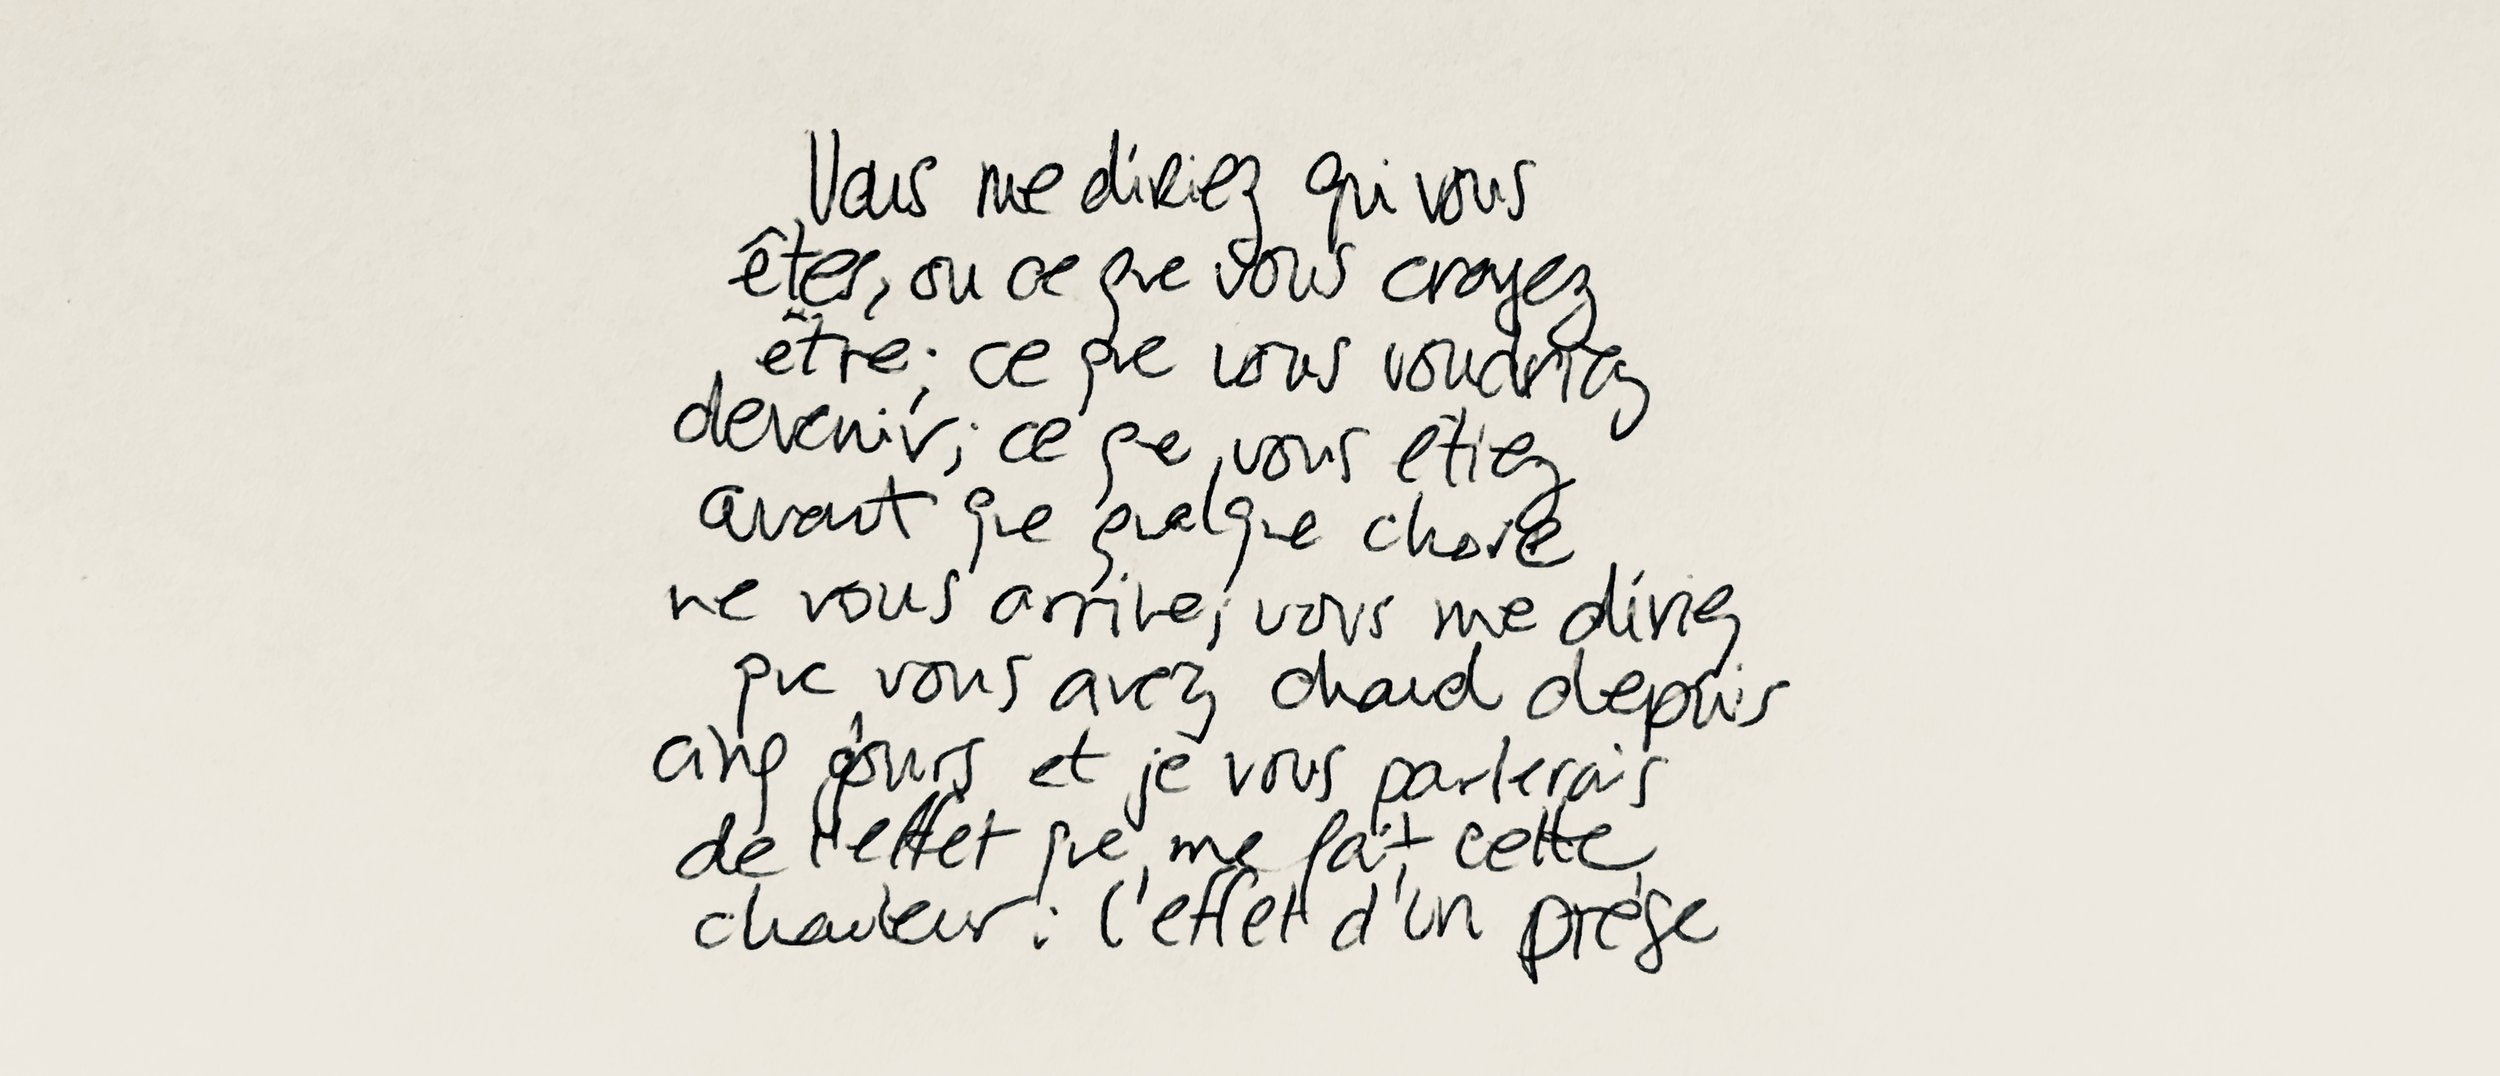 Vous me diriez qui vous
êtes, ou ce que vous croyez
être ; ce que vous voudriez
devenir ; ce que vous étiez
avant que quelque chose
ne vous arrive ; vous me diriez
que vous avez chaud depuis
cinq jours et je vous parlerais
de l'effet que me fait cette
chaleur : l'effet d'un piège